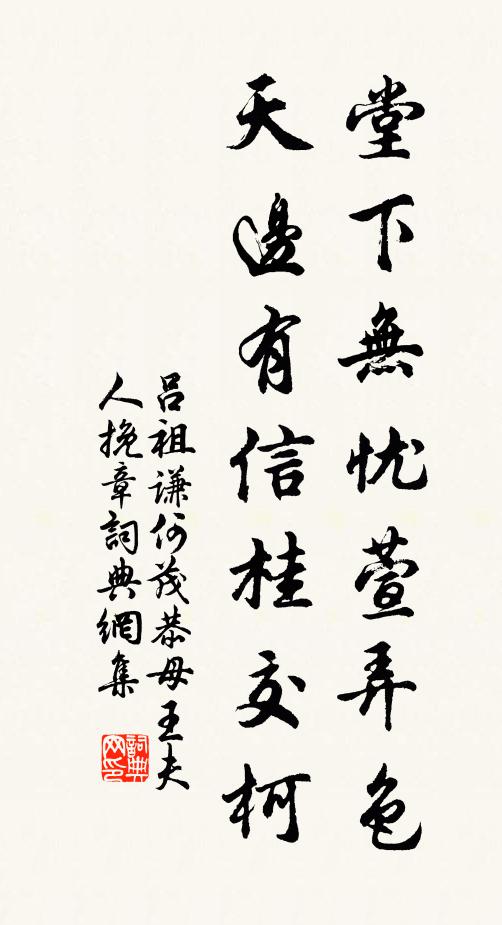 堂下無忧萱弄色
天邊有信桂交柯
吕祖謙何茂恭母王夫
人挽章詞典網集
詞典网印